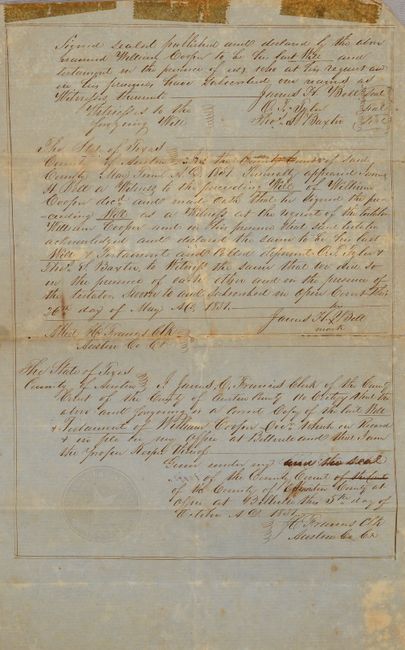 Signed sealed published and declared by the above
named William Cooper to be his last Will and
testament in the presence of us, who at his request and
in his presence have subscribed our names as
Witnesses hereunto James H. Bell Seal
Witnesses to the O. L. Tyler Seal
foregoing Will Thos. S. Baxter Seal
The State of Texas
County of Austin In the County Court of said
County May Term A.D. 1851. Personally appeared James
H. Bell a Witness to the preceding Will of William
Cooper decd. and made oath that he signed the pre-
ceeding Will as a Witness at the request of the testator
William Cooper and in his presence that said testator
acknowledged and declared the same to be his last
Will & Testament and called deponent Tyler &
Thos. S. Baxter to Witness the same that we did so
in the presence of each other and in the presence of
the testator Sworn to and subscribed in Open Court this
26th day of May A.D. 1851.
James H. Bell
mark
Attest Francis Clk
Austin Co Ct
The State of Texas
County of Austin I James Francis Clerk of the County
Court of the County of Austin County do Certify that the
above and foregoing is a correct Copy of the last Will
& Testament of William Cooper Decd. which is on Record
& on file in my office at Bellville and that I am
the proper Keeper thereof
Given under my and the seal
of the County Court
of the County of Austin County at
office at Bellville this 5th day of
October A.D. 1851.
Francis Clk
Austin Co Ct